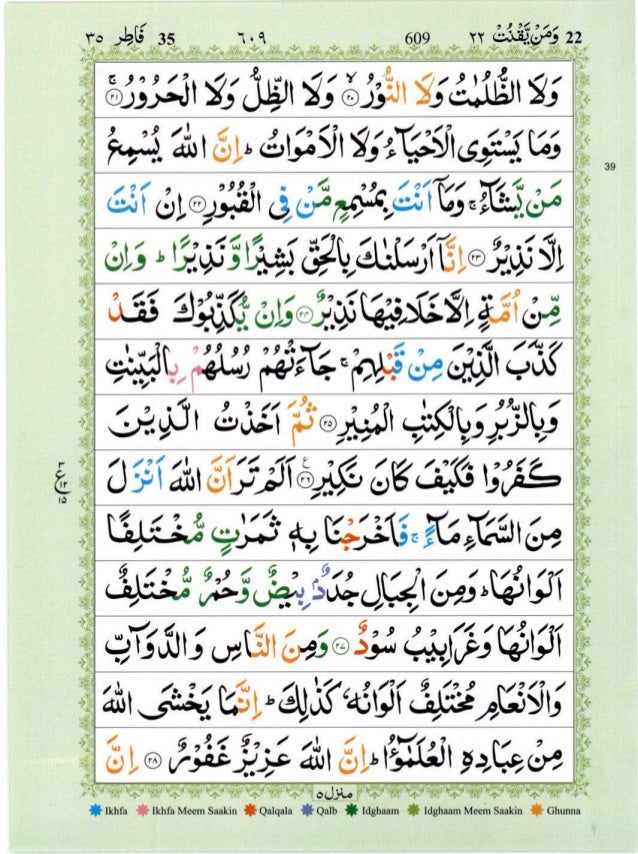 ۳۵ فَاطِر 35 ٦٠٩ 609 وَمَنْ يَّقْنُتْ ۲۲ 22
وَلَا الظُّلُمٰتُ وَلَا النُّوْرُ ﴿۲۰﴾ وَلَا الظِّلُّ وَلَا الْحَرُوْرُ ﴿۲۱﴾
وَمَا يَسْتَوِى الْاَحْيَآءُ وَلَا الْاَمْوَاتُ ؕ اِنَّ اللّٰهَ يُسْمِعُ
مَنْ يَّشَآءُ ۚ وَمَاۤ اَنْتَ بِمُسْمِعٍ مَّنْ فِى الْقُبُوْرِ ﴿۲۲﴾ اِنْ اَنْتَ
اِلَّا نَذِيْرٌ ﴿۲۳﴾ اِنَّاۤ اَرْسَلْنٰكَ بِالْحَقِّ بَشِيْرًا وَّنَذِيْرًا ؕ وَاِنْ
مِّنْ اُمَّةٍ اِلَّا خَلَا فِيْهَا نَذِيْرٌ ﴿۲۴﴾ وَاِنْ يُّكَذِّبُوْكَ فَقَدْ
كَذَّبَ الَّذِيْنَ مِنْ قَبْلِهِمْ ۚ جَآءَتْهُمْ رُسُلُهُمْ بِالْبَيِّنٰتِ
وَبِالزُّبُرِ وَبِالْكِتٰبِ الْمُنِيْرِ ﴿۲۵﴾ ثُمَّ اَخَذْتُ الَّذِيْنَ
كَفَرُوْا فَكَيْفَ كَانَ نَكِيْرِ ﴿۲۶﴾ اَلَمْ تَرَ اَنَّ اللّٰهَ اَنْزَلَ
مِنَ السَّمَآءِ مَآءً ۚ فَاَخْرَجْنَا بِهٖ ثَمَرٰتٍ مُّخْتَلِفًا
اَلْوَانُهَا ؕ وَمِنَ الْجِبَالِ جُدَدٌۢ بِيْضٌ وَّحُمْرٌ مُّخْتَلِفٌ
اَلْوَانُهَا وَغَرَابِيْبُ سُوْدٌ ﴿۲۷﴾ وَمِنَ النَّاسِ وَالدَّوَآبِّ
وَالْاَنْعَامِ مُخْتَلِفٌ اَلْوَانُهٗ كَذٰلِكَ ؕ اِنَّمَا يَخْشَى اللّٰهَ
مِنْ عِبَادِهِ الْعُلَمٰٓؤُا ؕ اِنَّ اللّٰهَ عَزِيْزٌ غَفُوْرٌ ﴿۲۸﴾ اِنَّ
39
۳
ع
۱۲
۱۵
منزل ۵
Ikhfa Ikhfa Meem Saakin Qalqala Qalb Idghaam Idghaam Meem Saakin Ghunna